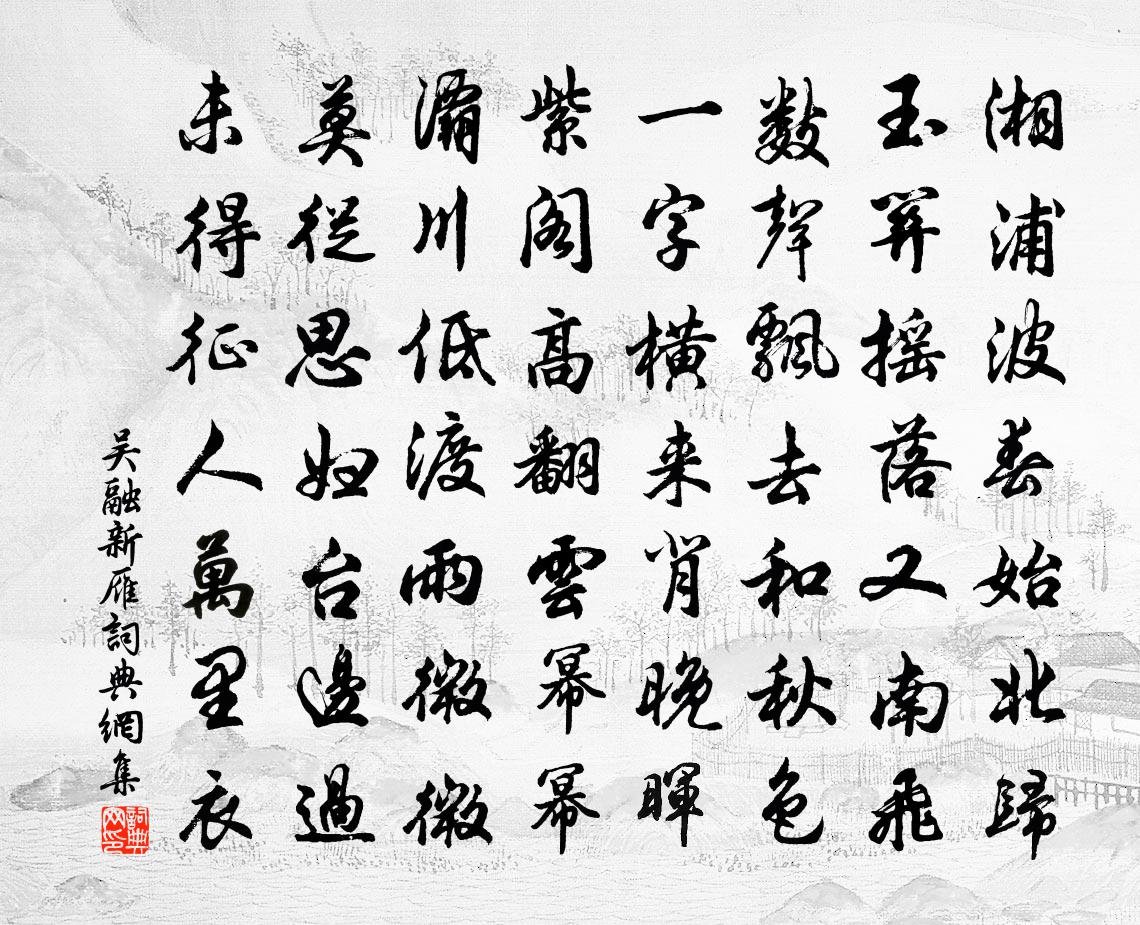 湘浦波春始北歸
玉關搖落又南飛
數聲飄去和秋色
一字橫来背晚暉
紫阁高翻雲幂幂
灞川低渡雨微微
莫從思婦台邊過
未得征人萬里衣
吴融新雁詞典網集
詞典網印